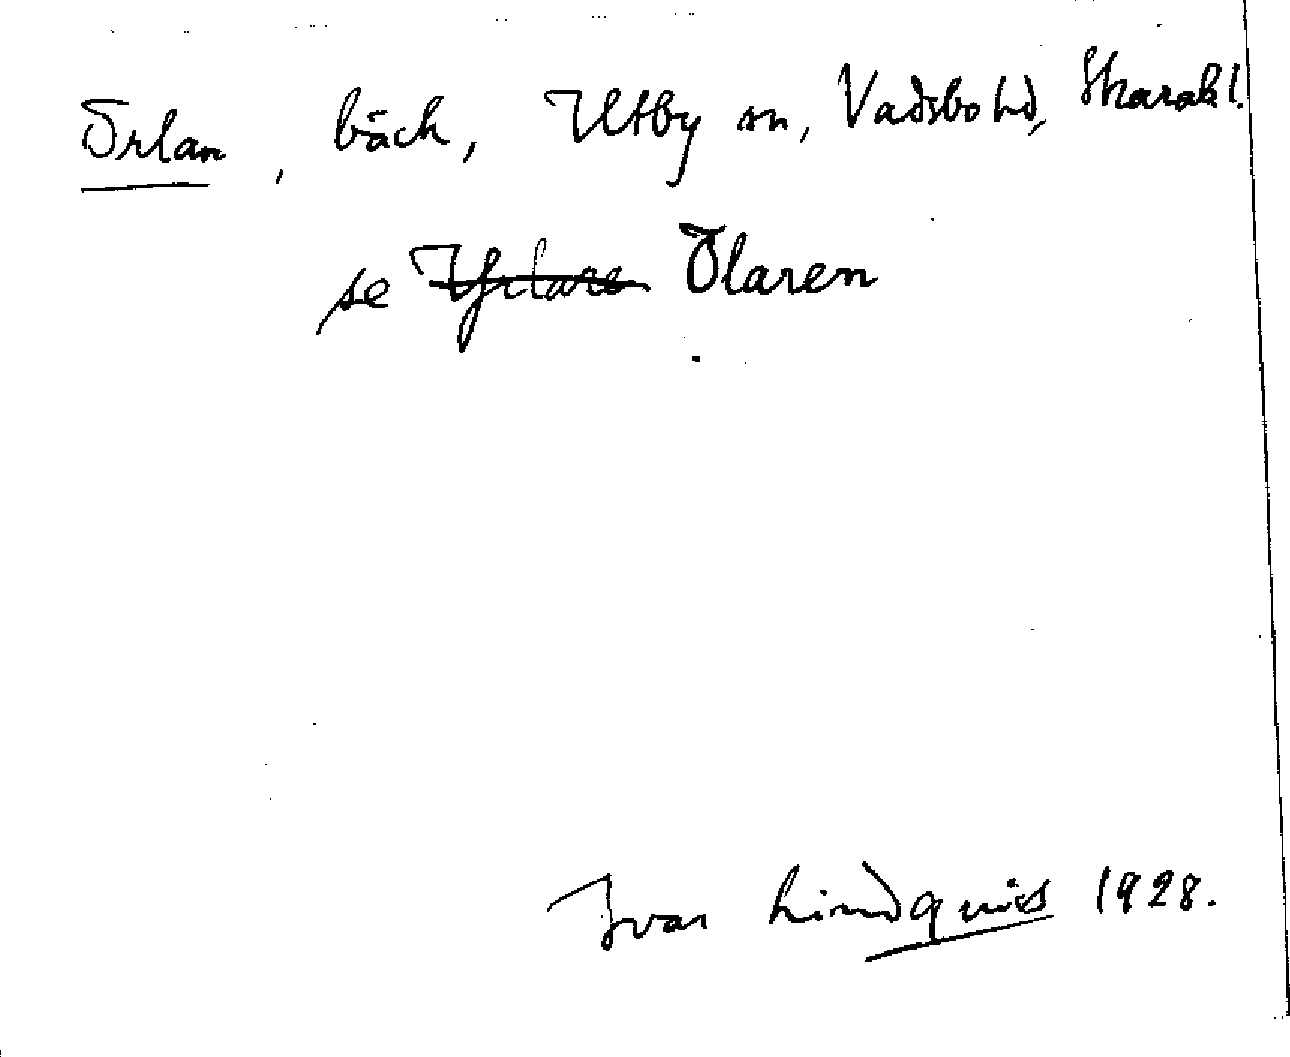 Örlan, bäck, Utby sn, Vadsbo hd, Skarabl.
se Ölaren
Ivar Lindquist 1928.